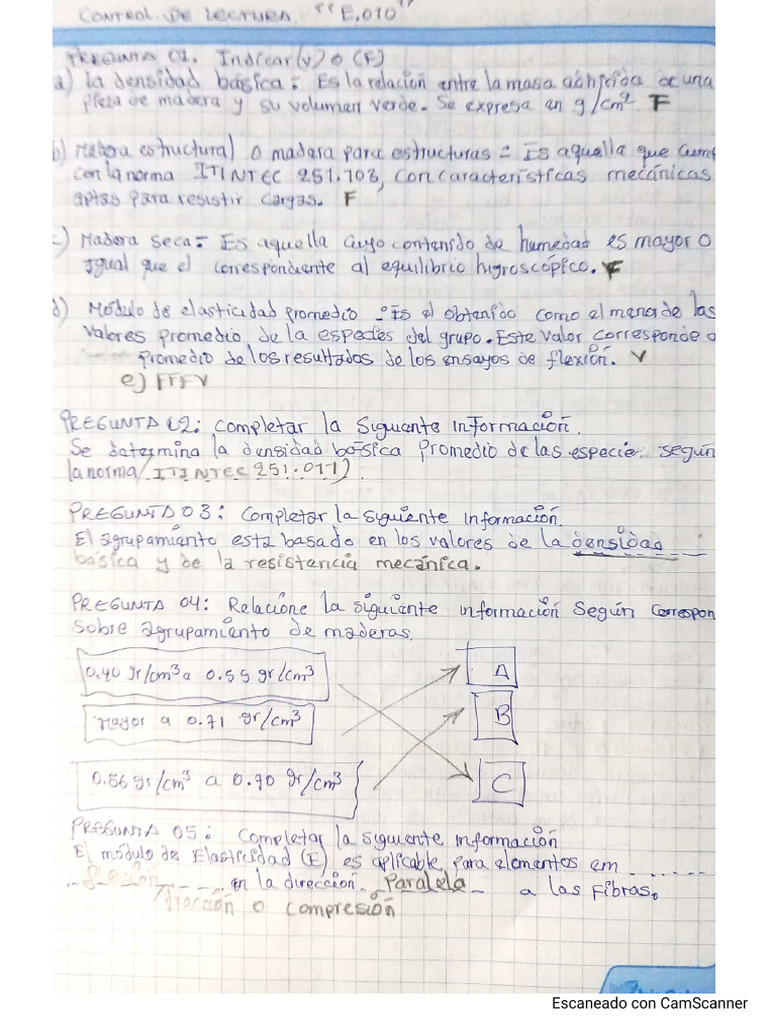 CONTROL DE LECTURA "E.010"
PREGUNTA 01. Indicar (v) o (F)
a) La densidad básica: Es la relación entre la masa anhidrida de una
pieza de madera y su volumen verde. Se expresa en g/cm². F
b) Madera estructural o madera para estructuras = Es aquella que cump
con la norma ITINTEC 251.103, con características mecánicas
aptas para resistir cargas. F
c) Madera seca: Es aquella cuyo contenido de humedad es mayor o
igual que el correspondiente al equilibrio higroscópico. F
d) Módulo de elasticidad promedio: Es el obtenido como el menor de las
valores promedio de la especies del grupo. Este valor corresponde a
promedio de los resultados de los ensayos de flexión. V
e) FFFV
PREGUNTA 02: completar la siguiente información.
Se determina la densidad básica promedio de las especie según
la norma (ITINTEC 251.011)
PREGUNTA 03: Completar la siguiente información
El agrupamiento esta basado en los valores de la densidad
básica y de la resistencia mecánica.
PREGUNTA 04: Relacione la siguiente información según correspon
sobre agrupamiento de maderas.
0.40 gr/cm³ a 0.55 gr/cm³ A
Mayor a 0.71 gr/cm³ B
0.56 gr/cm³ a 0.70 gr/cm³ C
PREGUNTA 05: Completar la siguiente información
El módulo de Elasticidad (E) es aplicable para elementos em ......
flexión ..... en la dirección Paralela a las fibras.
Tracción o compresión
Escaneado con CamScanner